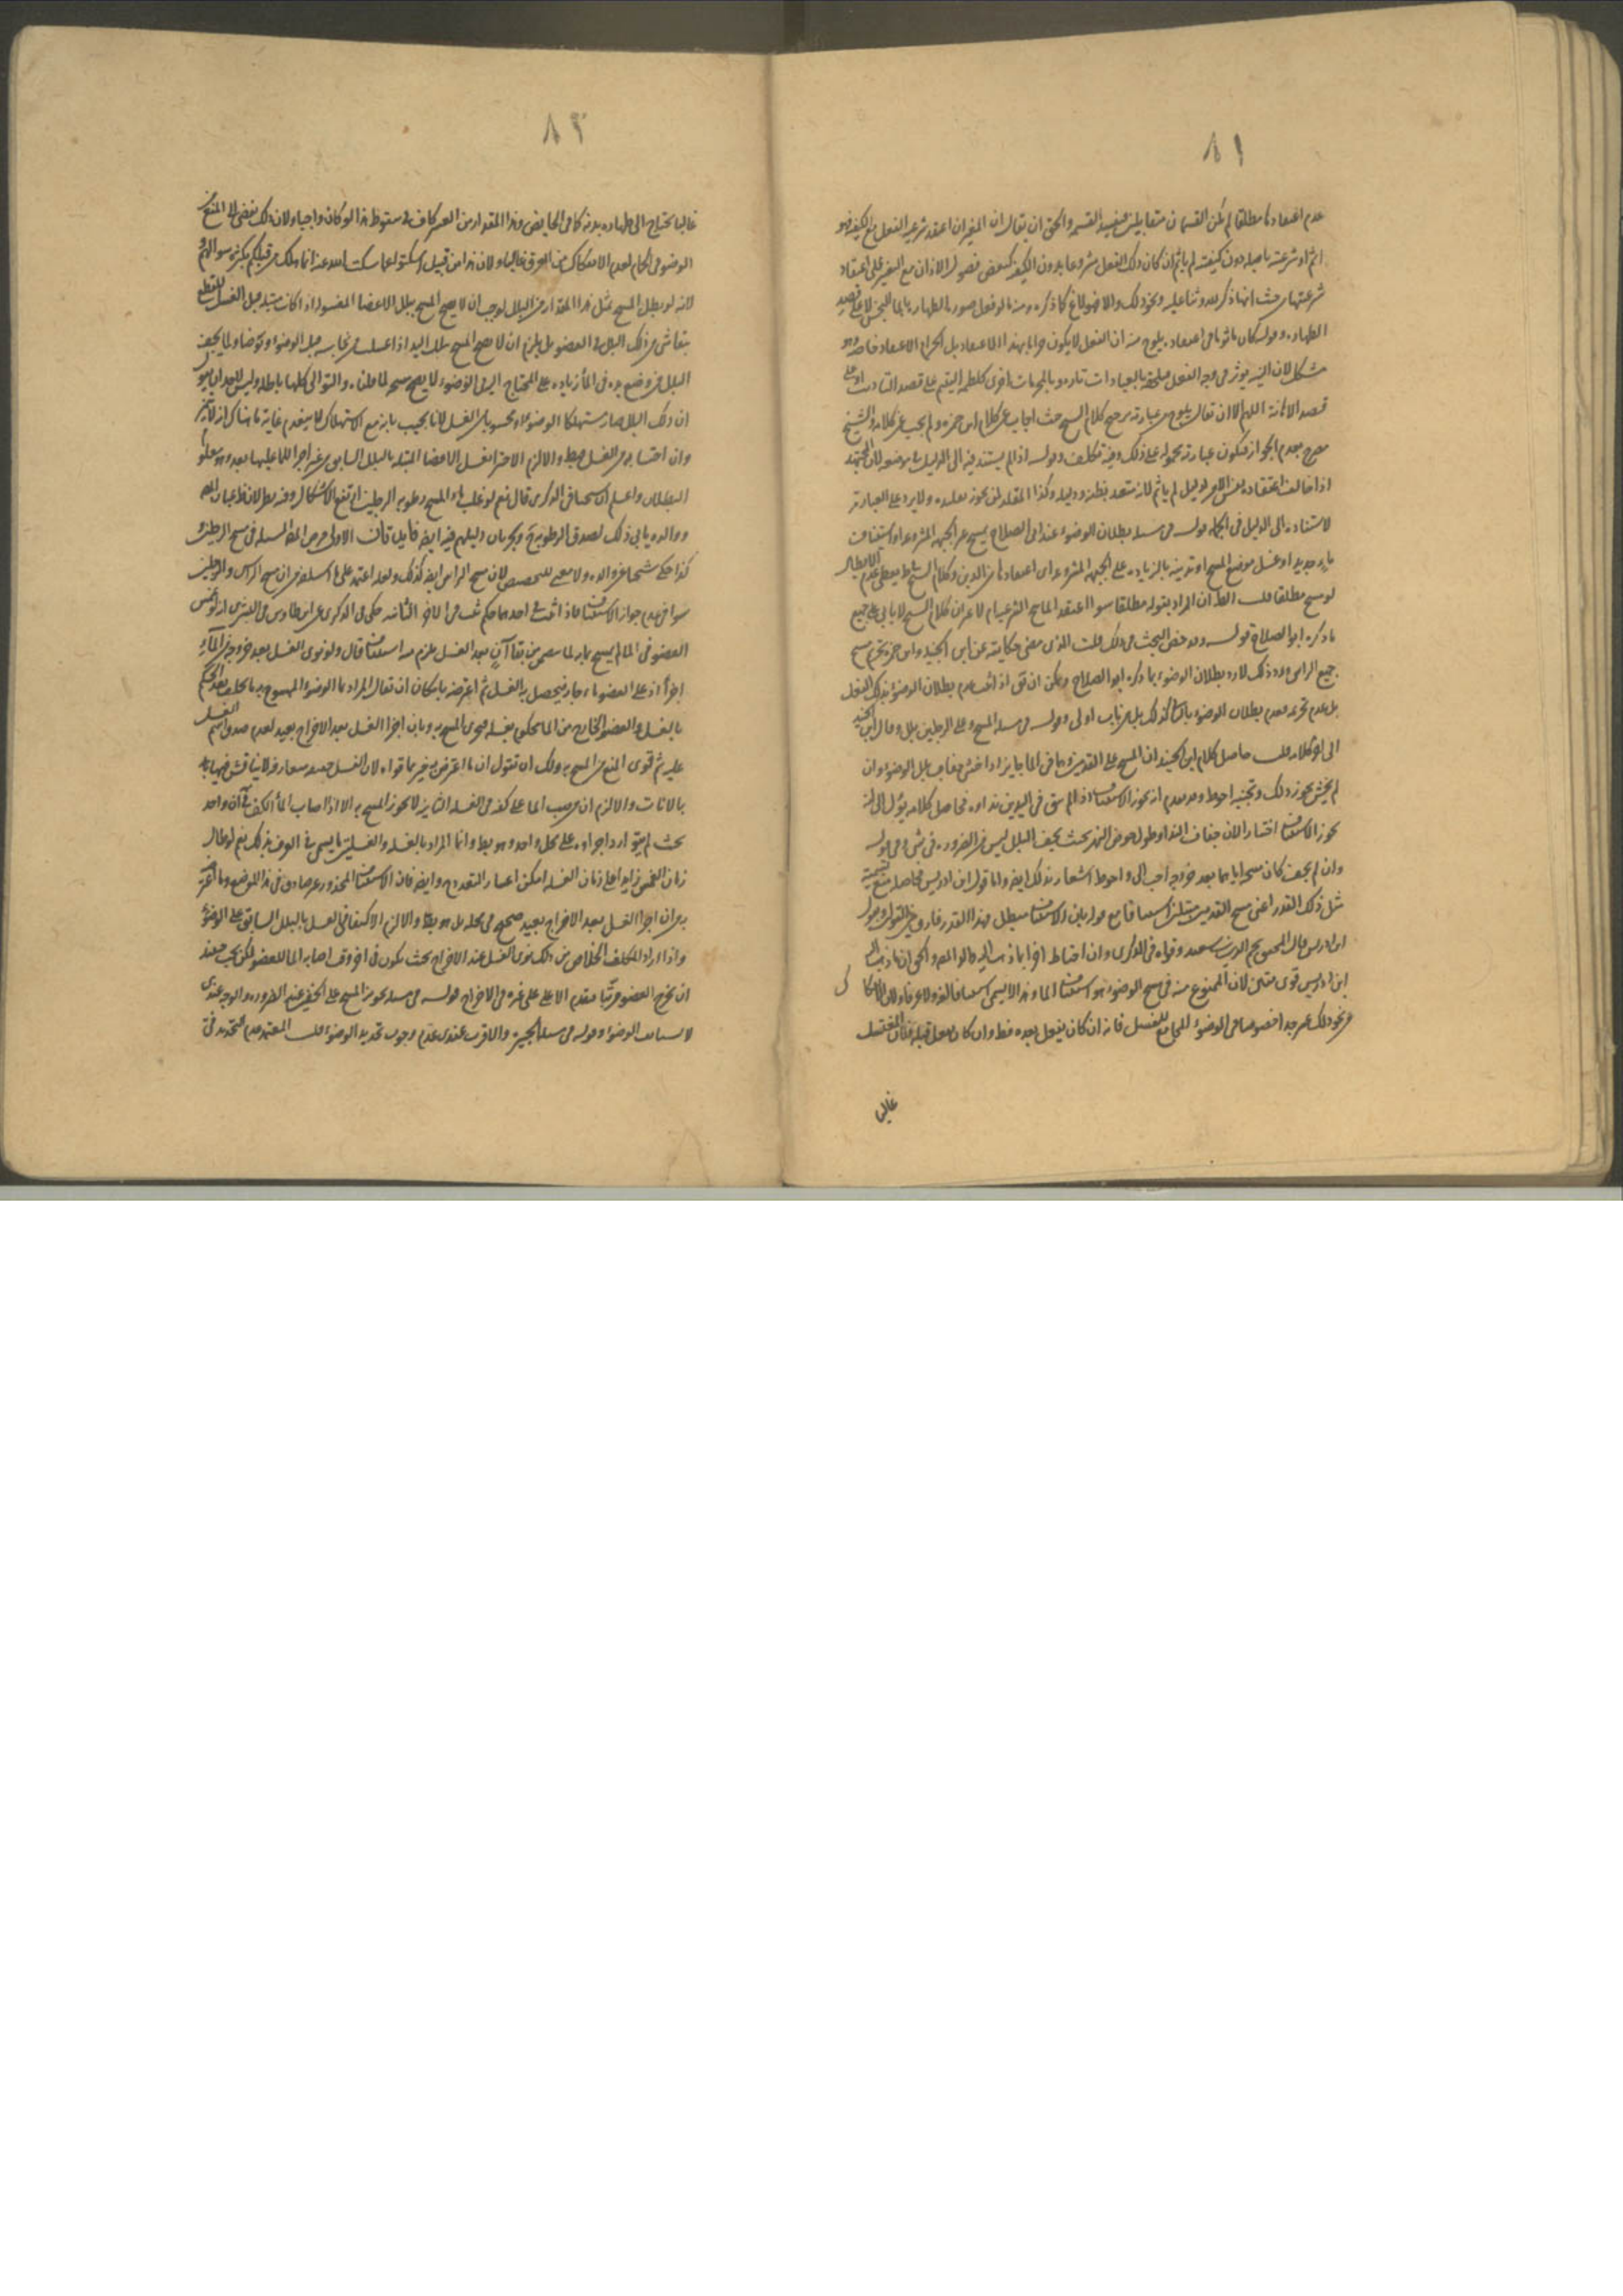 ٨١
عدم اعتقادها مطلقا لم يكن القسمان متقابلين فيفسد القسمة والحق ان يقال ان المغير ان اعتقد شرعية الفعل مع الكيفية فهو
اثم او شرعيته باصله دون كيفيته لم ياثم ان كان ذلك الفعل مشروعا بدون الكيفية كبعض فصول الاذان مع التغير على اعتقاد
شرعيتها من حيث انها ذكر لله وثنا عليه ونحو ذلك والا فهو لاغ كما ذكره ومنه ما لو فعل صورة الطهارة بالماء النجس لا على قصد
الطهارة وقوله كان ماثوما في اعتقاده يلوح منه ان الفعل لا يكون حراما بهذا الاعتقاد بل الحرام الاعتقاد خاصة وهو
مشكل لان النية يوثر في وجه الفعل فيلحقه بالعبادات تارة وبالمحرمات اخرى كلطمة اليتيم على قصد التاديب او على
قصد الاهانة اللهم الا ان يقال يلوح من عبارته ترجيح كلام الشيخ حيث اجاب عن كلام ابن حمزة ولم يجب عن كلامه والشيخ
مصرح بعدم الجواز فيكون عبارته محمولة على ذلك وفيه تكلف وقوله اذا لم يستند فيه الى الدليل
اذا خالف اعتقاده نفس الامر لدليل لم ياثم لانه متعبد بظنه ودليله وكذا المقلد لمن يجوز تقليده ولا يرد على العبارة
لاستناده الى الدليل في الجملة قوله في مسئلة بطلان الوضوء عند ابي الصلاح يمسح على الجهة المشروعة او استئناف
ماء جديد او غسل موضع المسح او تدينه بالزيادة على الجهة المشروعة اي اعتقادها من الدين وكلام الشيخ يعطي عدم الابطال
لو مسح مطلقا قلت الظاهر ان المراد بقوله مطلقا سواء اعتقد الماسح الشرعية ام لا
ما ذكره ابو الصلاح قوله وقد مضى البحث في ذلك قلت الذي مضى حكايته عن ابن الجنيد وابن حمزة تحريم مسح
جميع الراس ورد ذلك لا رد بطلان الوضوء بما ذكره ابو الصلاح ويمكن ان يق اذا ثبت عدم بطلان الوضوء بذلك الفعل
بل عدم تحريمه بعدم بطلان الوضوء كذلك بل من باب اولى وقوله في مسئلة المسح على الرجلين بلل وقال ابن الجنيد
الى اخر كلامه قلت حاصل كلام ابن الجنيد ان المسح على القدمين وهما في الماء جايز اذا خشي جفاف بلل الوضوء وان
لم يخش يجوز ذلك وتجنبه احوط وقد تقدم انه يجوز الاستئناف اذا لم يبق في اليدين نداوة فحاصل كلامه يؤل الى انه
يجوز الاستئناف اختيارا لان جفاف النداوة طول خوض النهر بحيث يجف البلل ليس من الضرورة في شئ وفي قوله
وان لم يجف كان مسحه اياهما بعد خروجه احب الي واحوط اشعار بذلك ايضا واما قول ابن ادريس فحاصله منع تسمية
مثل ذلك القدر اعني مسح القدمين مبتلتين استئنافا مع قوله بان الاستئناف مبطل فهذا القدر فارق بين القولين وقول
ابن ادريس قال المحقق نجم الدين سعيد وقواه في الذكرى وان احتاط اخرا بما ذهب اليه والحق ان ما ذهب اليه
ابن ادريس قوي متين لان الممنوع منه في مسح الوضوء هو استئناف الماء وهذا لا يسمى استئنافا لغة ولا عرفا ولان الانفكاك
من نحو ذلك عسر جدا خصوصا في الوضوء المجامع للغسل فانه ان كان يفعل بعده فظ وان كان يفعل قبله فان المغتسل
غالبا
٨٢
غالبا يحتاج الى طهارة بدنه كما في الحايض وهذا المقدار من العسر كاف في سقوط هذا لو كان واجبا ولان ذلك يفضي الى المنع من
الوضوء في الحمام لعدم الانفكاك من العرق غالبا ولان هذا من قبيل اسكتوا عما سكت الله عنه انما هلك من قبلكم بكثرة سوالهم و
لانه لو بطل المسح بمثل هذا المقدار من البلل لوجب ان لا يصح المسح ببلل الاعضاء المغسولة اذا كانت مبتلة قبل الغسل للقطع
ببقاء شئ من ذلك البلل في العضو بل يلزم ان لا يصح المسح ببلل اليد اذا غسلت من نجاسة قبل الوضوء او توضا ولما يجف
البلل من وضع يده في الماء زيادة على المحتاج اليه في الوضوء لا يصح مسحه لما قلناه والتوالي كلها باطلة وليس للعبد ان يقول
ان ذلك البلل صار مستهلكا بماء الوضوء او محسوبا من الغسل لانا نجيب بانه مع الاستهلاك لا ينعدم غاية ما هناك انه لا يتميز
وان احتسابه من الغسل خبط والا لزم الاجتزاء بغسل الاعضاء المبتلة بالبلل السابق من غير اجراء الماء عليها بعد وهو معلوم
البطلان واعلم ان الشهيد في الذكرى قال نعم لو غلب ماء المسح رطوبة الرجلين ارتفع الاشكال وفيه نظر لان ظ عبارة المصنف
ووالده يابى ذلك لصدق الرطوبة وبجريان دليلهم فيه ايضا فايدتان الاولى فرض المصنف المسئلة في مسح الرطبتين و
كذا حكى شيخنا عن والده ولا معنى للتخصيص لان مسح الراس ايضا كذلك وقد اعتمد على ما اسلفه من ان مسح الراس والرجلين
سوا في عدم جواز الاستئناف فاذا ثبت في احدهما حكم ثبت في الاخر الثانية حكى في الذكرى عن ابن طاوس في البشرى انه لو غمس
العضو في الماء لم يمسح بمائه لما تضمن من بقاء آن بعد الغسل يلزم منه استئناف قال ولو نوى الغسل بعد خروجه من الماء
اجزأ اذ على العضو ماء جار فيحصل به الغسل ثم اعترضه بامكان ان يقال المراد بماء الوضوء الممسوح به ما تخلف بعد الحكم
بالغسل والعضو الخارج من الماء محكوم بغسله فيجزي المسح به وبان اجزاء الغسل بعد الاخراج بعيد لعدم صدق اسم الغسل
عليه ثم قوى المنع من المسح به ولك ان تقول ان ما اعترض به غير ما قواه لان الغسل حقيقة متعارفة لا يناقش فيها
بالانات والا لزم ان من صب الماء على كفه في الغسلة الثانية لا يجوز المسح به الا اذا اصاب الماء الكف في آن واحد
بحيث لم يتوارد اجزاؤه على محل واحد وهو بط وانما المراد بالغسلة والغسلتين ما يسمى في العرف بذلك نعم لو طال
زمان الغمس زايدا على زمان الغسلة امكن اعتبار التعدد وايضا فان الاستئناف المحذور غير صادق في هذا الموضع وما اعترض
به من ان اجزاء الغسل بعد الاخراج بعيد صحيح في محله بل هو بط والا لزم الاكتفاء في الغسل بالبلل السابق على الوضوء
واذا اراد المكلف الخلاص من ذلك نوى الغسل عند الاخراج بحيث يكون في اخر وقت اصابة الماء للعضو لكن يجب حينئذ
ان يخرج العضو مرتبا مقدم الاعلى على غيره في الاخراج قوله في مسئلة تجويز المسح على الخفين عند الضرورة والوجه عندي
لا يستانف الوضوء وقوله في مسئلة الجبيرة والاقرب عندي عدم وجوب تجديد الوضوء قلت المعتمد عدم التجديد في